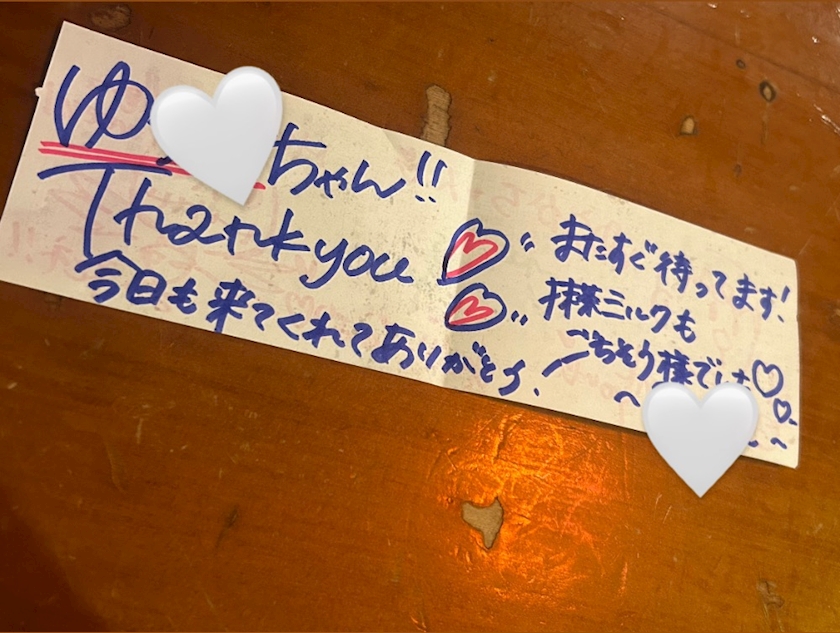 ゆ ちゃん!!
Thank you
今日も来てくれてありがとう!
またすぐ待ってます!
抹茶ミルクも
ごちそう様でした♡